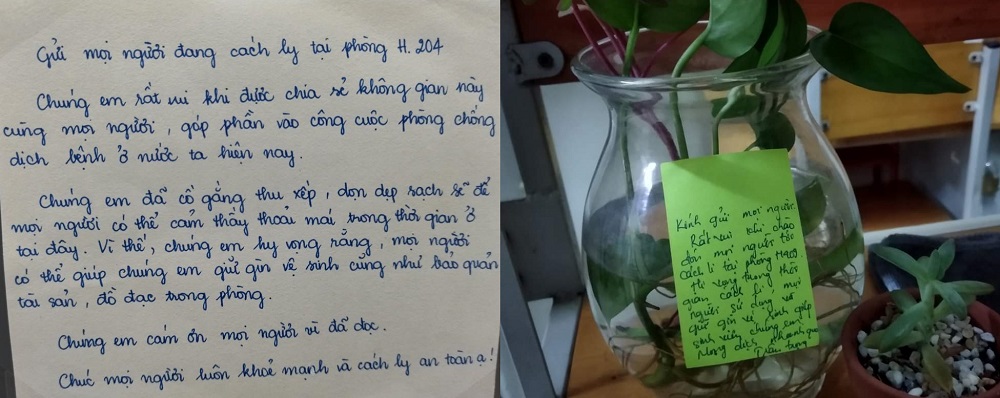 Gửi mọi người đang cách ly tại phòng H.204
Chúng em rất vui khi được chia sẻ không gian này
cùng mọi người, góp phần vào công cuộc phòng chống
dịch bệnh ở nước ta hiện nay.
Chúng em đã cố gắng thu xếp, dọn dẹp sạch sẽ để
mọi người có thể cảm thấy thoải mái trong thời gian ở
tại đây. Vì thế, chúng em hy vọng rằng, mọi người
có thể giúp chúng em giữ gìn vệ sinh cũng như bảo quản
tài sản, đồ đạc trong phòng.
Chúng em cám ơn mọi người vì đã đọc.
Chúc mọi người luôn khoẻ mạnh và cách ly an toàn ạ!
Kính gửi mọi người.
Rất vui khi chào
đón mọi người tới
cách li tại phòng
Hi vọng trong thời
gian cách li mọi
người sử dụng và
giữ gìn vệ sinh giúp
sinh viên chúng em.
Mong dịch nhanh qua
Trân trọng